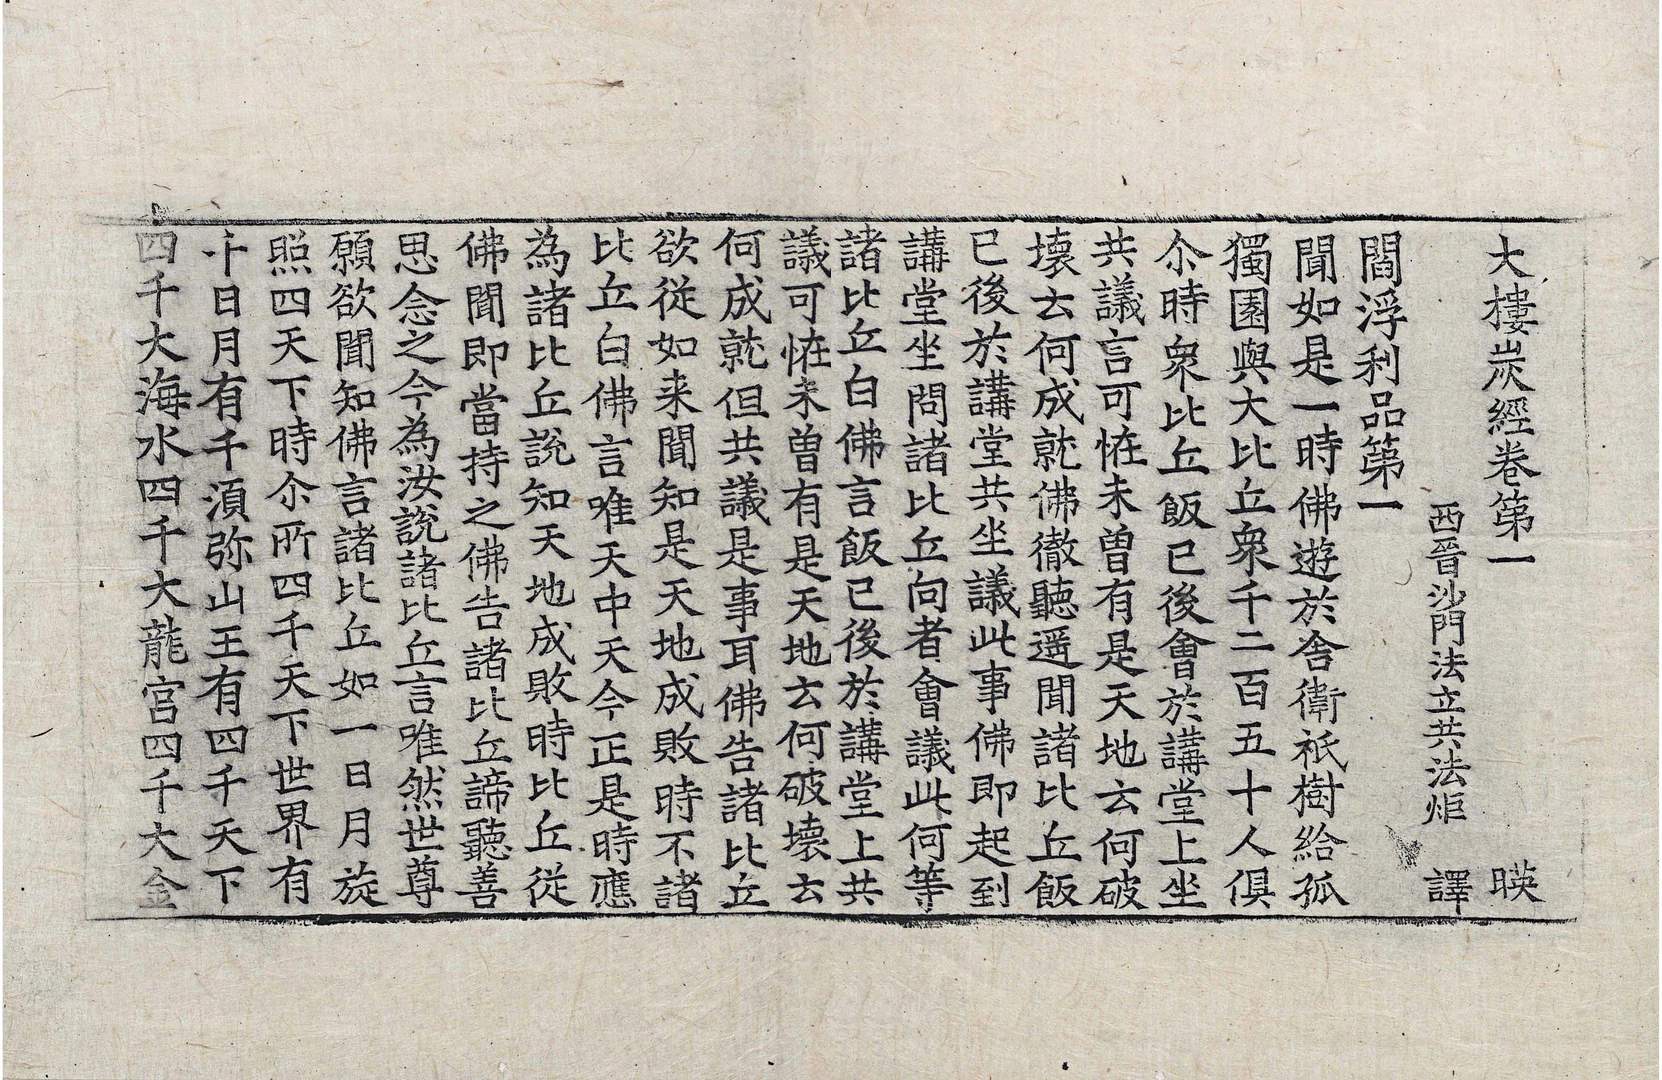 大樓炭經卷第一 暎
西晉沙門法立共法炬 譯
閻浮利品第一
聞如是一時佛遊於舍衛祇樹給孤
獨園與大比丘衆千二百五十人俱
尒時衆比丘飯已後會於講堂上坐
共議言可恠未曾有是天地云何破
壞云何成就佛徹聽遥聞諸比丘飯
已後於講堂共坐議此事佛即起到
講堂坐問諸比丘向者會議此何等
諸比丘白佛言飯已後於講堂上共
議可恠未曽有是天地云何破壞云
何成就但共議是事耳佛告諸比丘
欲從如来聞知是天地成敗時不諸
比丘白佛言唯天中天今正是時應
為諸比丘說知天地成敗時比丘從
佛聞即當持之佛告諸比丘諦聽善
思念之今為汝說諸比丘言唯然世尊
願欲聞知佛言諸比丘如一日月旋
照四天下時尒所四千天下世界有
千日月有千須弥山王有四千天下
四千大海水四千大龍宮四千大金